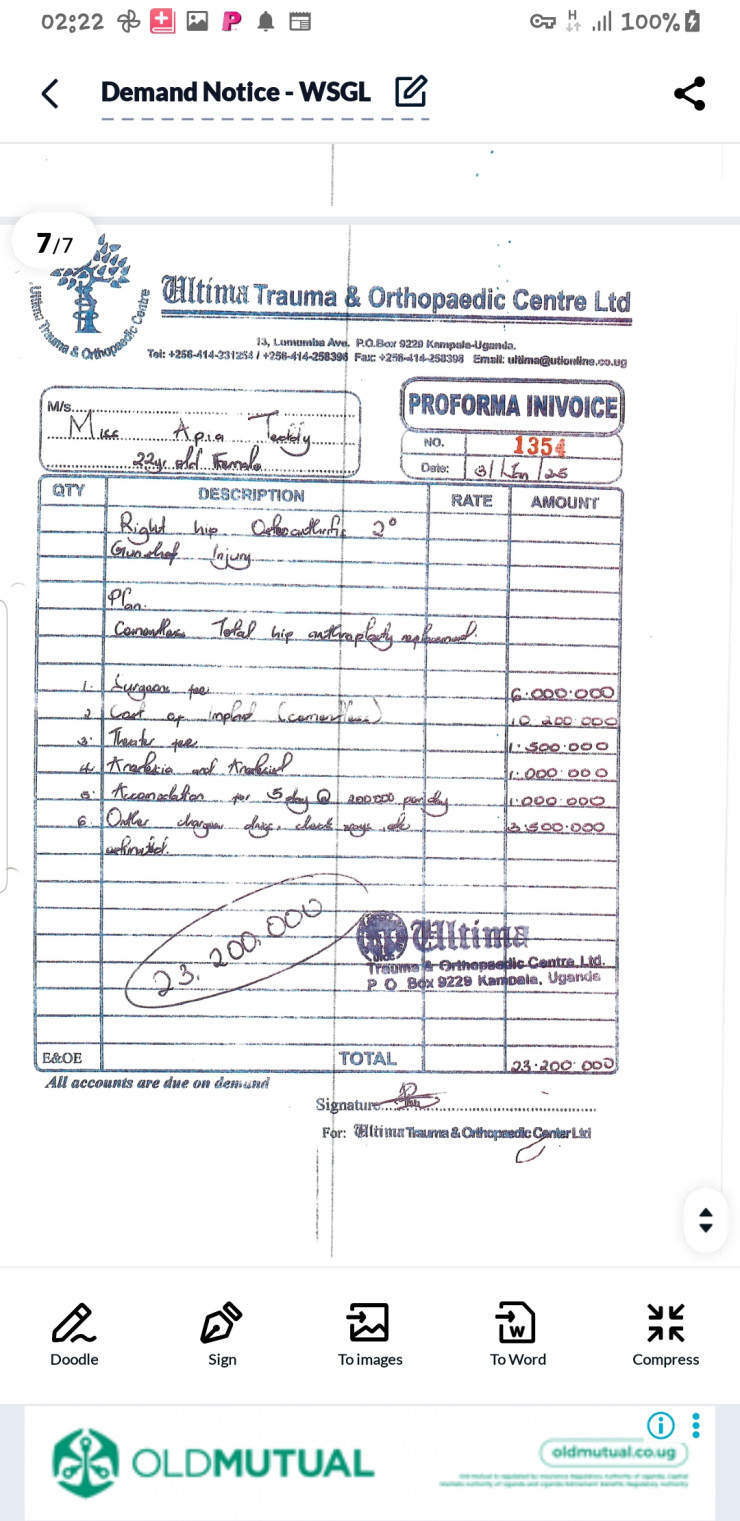 02:22
100%
Demand Notice - WSGL
7/7
Ultima Trauma & Orthopaedic Centre
Ultima Trauma & Orthopaedic Centre Ltd
13, Lumumba Ave. P.O.Box 9229 Kampala-Uganda.
Tel: +256-414-231254 / +256-414-258396 Fax: +256-414-258398 Email: ultima@utlonline.co.ug
M/s
Miss Apia Teddy
22yr old Female
PROFORMA INIVOICE
NO. 1354
Date: 31/Jan/25
QTY DESCRIPTION RATE AMOUNT
Right hip 2°
Gunshot Injury
Plan.
Total hip
1. Surgeons fee 6.000.000
2 Cost of (cementless) 10 200 000
3. Theatre fee 1.500.000
4. and 1.000.000
5. for 5 day @ 200000 per day 1.000.000
6. Other charges 3.500.000
23.200,000
Ultima
Trauma & Orthopaedic Centre Ltd.
P O Box 9229 Kampala, Uganda
E&OE TOTAL 23.200 000
All accounts are due on demand
Signature
For: Ultima Trauma & Orthopaedic Center Ltd
Doodle Sign To images To Word Compress
OLDMUTUAL
oldmutual.co.ug